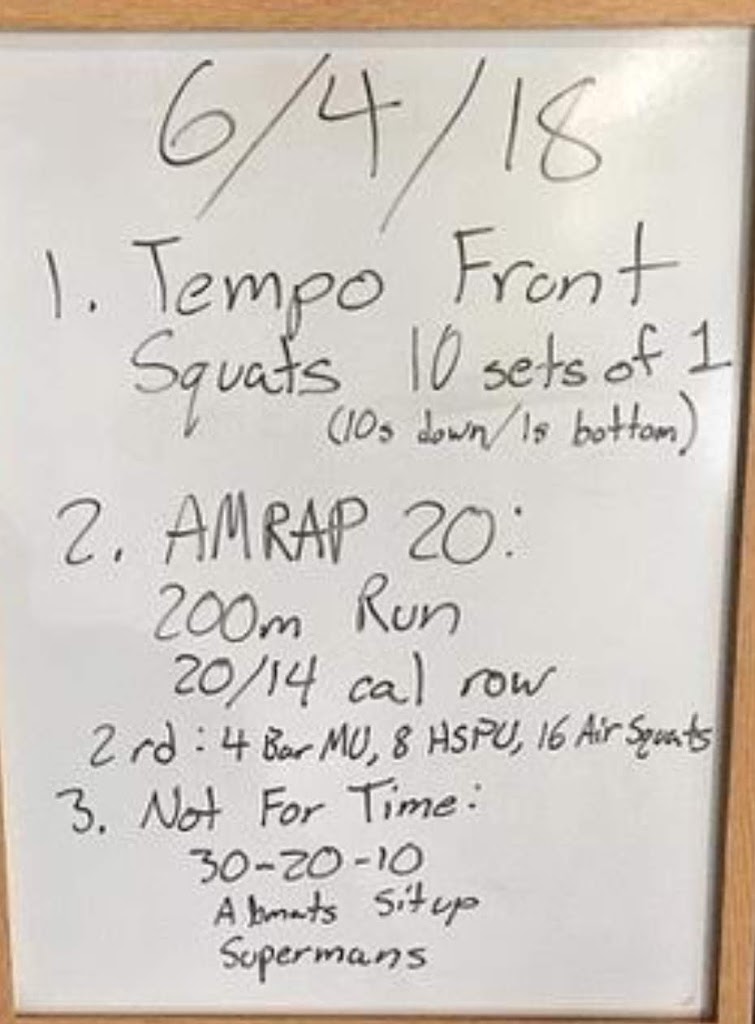 6/4/18
1. Tempo Front
Squats 10 sets of 1
(10s down/1s bottom)
2. AMRAP 20:
200m Run
20/14 cal row
2 rd: 4 Bar MU, 8 HSPU, 16 Air Squats
3. Not For Time:
30-20-10
Abmats Situp
Supermans